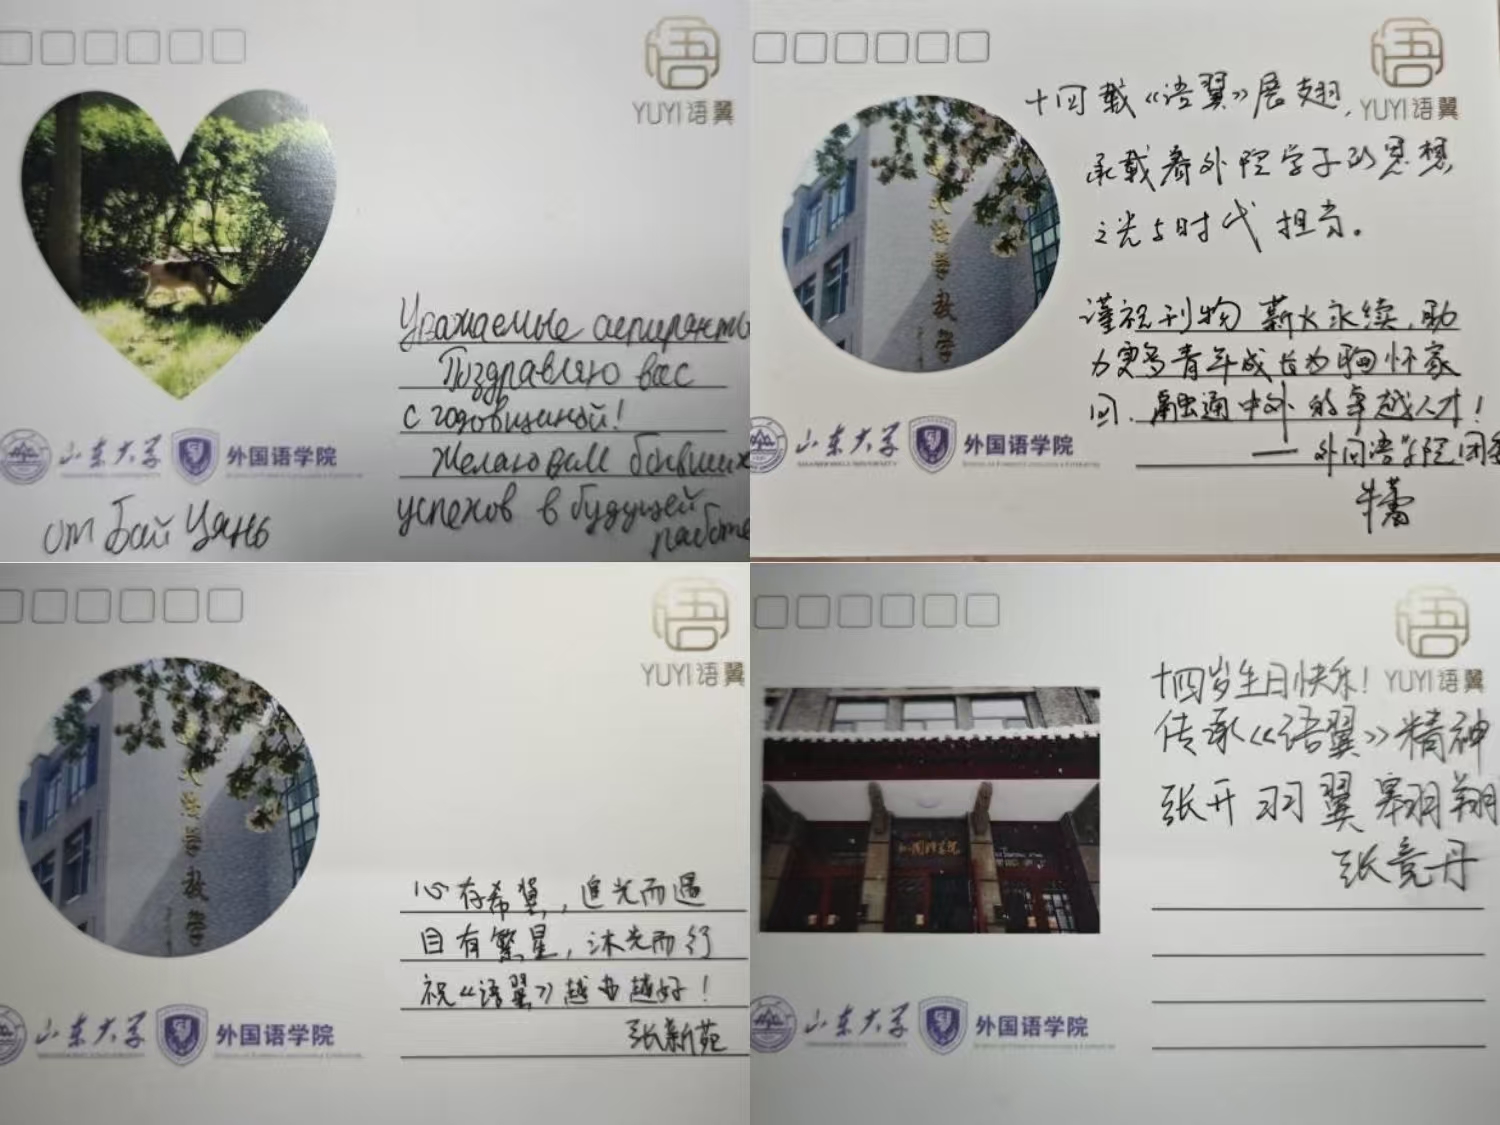 YUYI语翼
Уважаемые аспиранты
Поздравляю вас
с годовщиной!
Желаю вам больших
успехов в будущей
работе
山东大学
外国语学院
от Бай Цянь
YUYI语翼
十四载《语翼》展翅，
承载着外院学子的思想
之光与时代担当。
谨祝刊物薪火永续，助
力更多青年成长为胸怀家
国、融通中外的卓越人才！
——外国语学院团委
牛蕾
山东大学
外国语学院
YUYI语翼
心存希冀，追光而遇
目有繁星，沐光而行
祝《语翼》越办越好！
张新苑
山东大学
外国语学院
YUYI语翼
十四岁生日快乐！
传承《语翼》精神
张开羽翼翱翔
张竞丹
外国语学院
山东大学
外国语学院